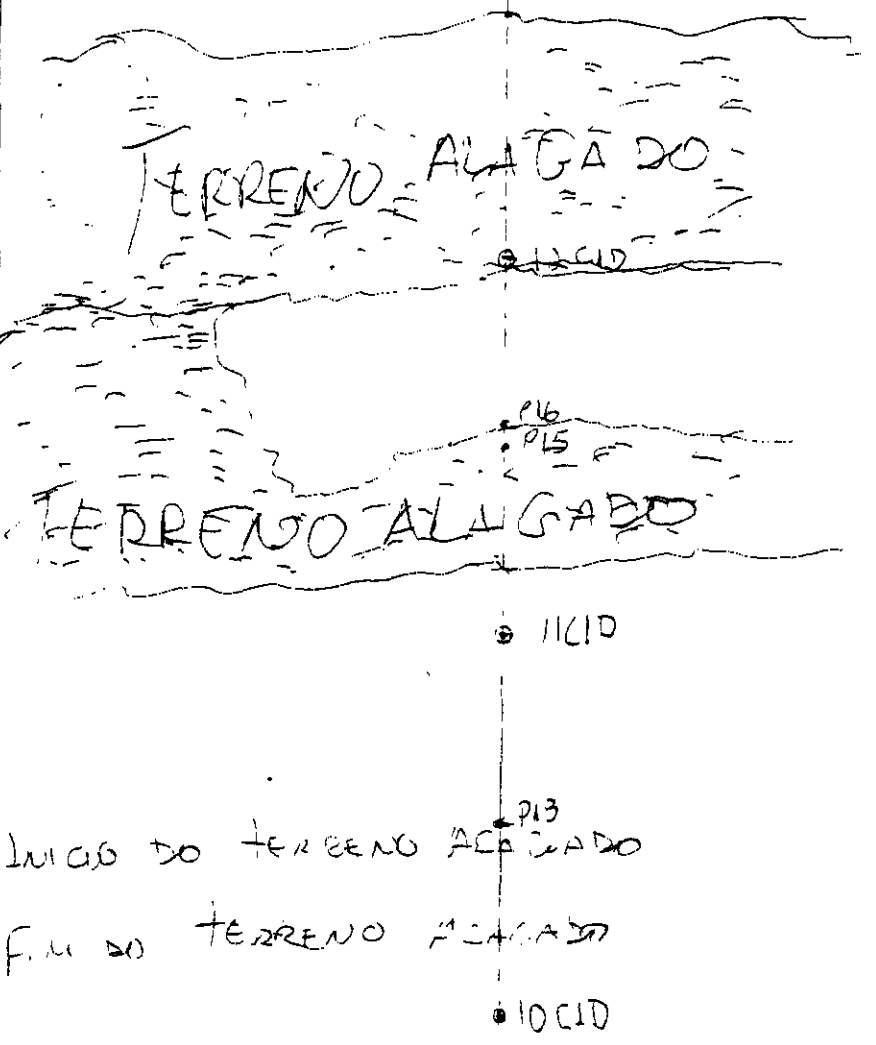 TERRENO ALAGADO
12CID
P16
P15
TERRENO ALAGADO
11CID
P13
INICIO DO TERRENO ALAGADO
FIM DO TERRENO ALAGADO
10CID